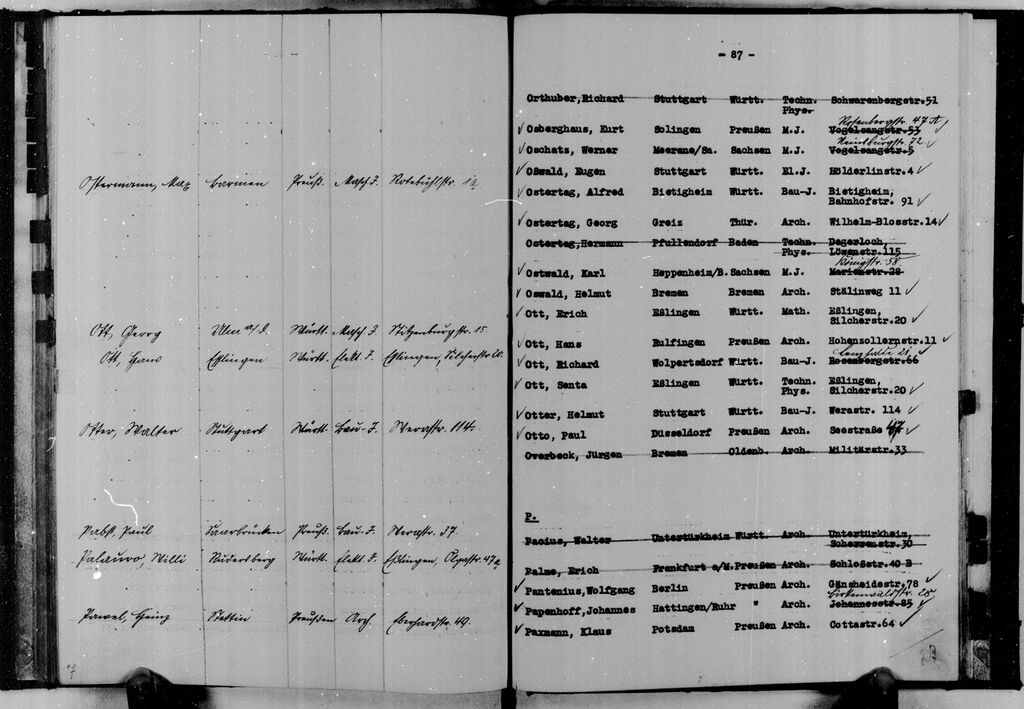 Ostermann, Max Barmen Preuß. Masch J. Rotebühlstr. 1a
Ott, Georg Ulm a/D. Württ. Masch J. Stitzenburgstr. 15.
Ott, Hans Eßlingen Württ. Elekt. J. Eßlingen, Silcherstr. 20.
Otter, Walter Stuttgart Württ. Bau-J. Werastr. 114.
Pabst, Paul Saarbrücken Preuß. Bau-J. Werastr. 37.
Palauro, Willi Rudersberg Württ. Elekt. J. Eßlingen, Olgastr. 47a
Pawel, Heinz Stettin Preußen Arch. Eberhardstr. 49.
7
- 87 -
Orthuber,Richard Stuttgart Württ. Techn. Schwarenbergstr.51
Phys.
Rotenbergstr. 47 A
Osberghaus, Kurt Solingen Preußen M.J. Vogelsangstr.53
Reinsburgstr. 72
Oschatz, Werner Meerane/Sa. Sachsen M.J. Vogelsangstr.5
Oßwald, Eugen Stuttgart Württ. El.J. Hölderlinstr.4
Ostertag, Alfred Bietigheim Württ. Bau-J. Bietigheim,
Bahnhofstr. 91
Ostertag, Georg Greiz Thür. Arch. Wilhelm-Blosstr.14
Ostertag,Hermann Pfullendorf Baden Techn. Degerloch,
Phys. Löwenstr.115
Königstr. 58
Ostwald, Karl Heppenheim/B. Sachsen M.J. Marienstr.28
Oswald, Helmut Bremen Bremen Arch. Stälinweg 11
Ott, Erich Eßlingen Württ. Math. Eßlingen,
Silcherstr.20
Ott, Hans Rulfingen Preußen Arch. Hohenzollernstr.11
Ott, Richard Wolpertsdorf Württ. Bau-J. Rosenbergstr.66
Ott, Senta Eßlingen Württ. Techn. Eßlingen,
Phys. Silcherstr.20
Otter, Helmut Stuttgart Württ. Bau-J. Werastr. 114
Otto, Paul Düsseldorf Preußen Arch. Seestraße
Overbeck, Jürgen Bremen Oldenb. Arch. Militärstr.33
P.
Pacius, Walter Untertürkheim Württ. Arch. Untertürkheim,
Scherrenstr.30
Palme, Erich Frankfurt a/M. Preußen Arch. Schloßstr.40 B
Pantenius,Wolfgang Berlin Preußen Arch. Gänsheidestr.78
Birkenwaldstr. 28
Papenhoff,Johannes Hattingen/Ruhr " Arch. Johannesstr.85
Paxmann, Klaus Potsdam Preußen Arch. Cottastr.64